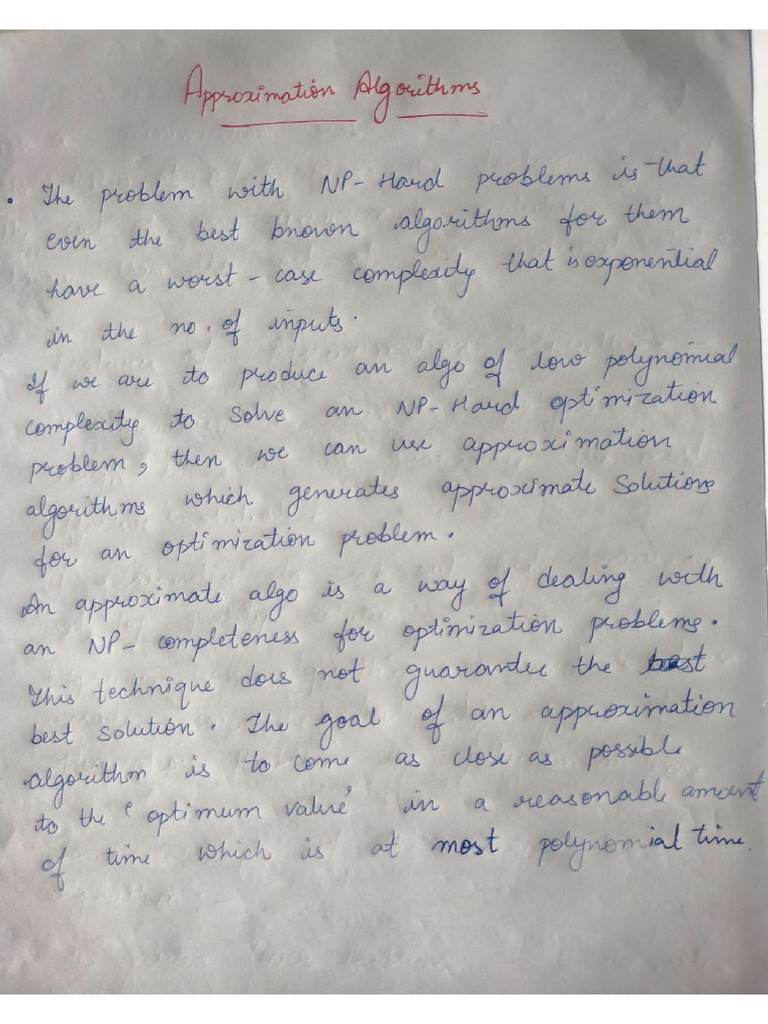 Approximation Algorithms
• The problem with NP-Hard problems is that
even the best known algorithms for them
have a worst-case complexity that is exponential
in the no. of inputs.
If we are to produce an algo of low polynomial
complexity to solve an NP-Hard optimization
problem, then we can use approximation
algorithms which generates approximate solutions
for an optimization problem.
An approximate algo is a way of dealing with
an NP-completeness for optimization problems.
This technique does not guarantee the best
best solution. The goal of an approximation
algorithm is to come as close as possible
to the 'optimum value' in a reasonable amount
of time which is at most polynomial time.